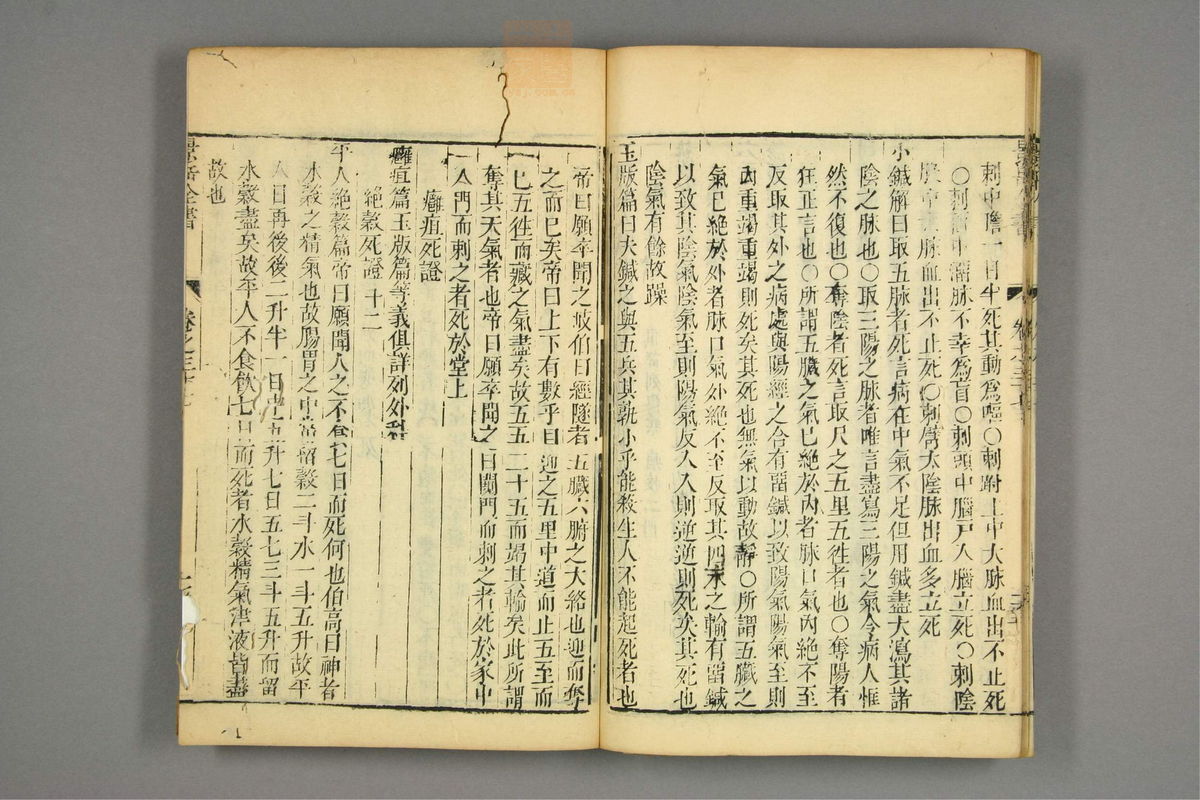 刺中膽一日半死其動爲嘔〇刺跗上中大脉血出不止死
〇刺面中溜脉不幸爲盲〇刺頭中腦戸入腦立死〇刺陰
股中大脉血出不止死〇刺臂太陰脉出血多立死
小鍼解曰取五脉者死言病在中氣不足但用鍼盡大瀉其諸
陰之脉也〇取三陽之脉者唯言盡寫三陽之氣令病人恇
然不復也〇奪陰者死言取尺之五里五徃者也〇奪陽者
狂正言也〇所謂五臟之氣已絶於内者脉口氣内絶不至
反取其外之病處與陽經之合有留鍼以致陽氣陽氣至則
内重竭重竭則死矣其死也無氣以動故靜〇所謂五臟之
氣已絶於外者脉口氣外絶不至反取其四末之輸有留鍼
以致其陰氣陰氣至則陽氣反入入則逆逆則死矣其死也
陰氣有餘故躁
玉版篇曰夫鍼之與五兵其孰小乎能殺生人不能起死者也
帝曰願卒聞之岐伯曰經隧者五臟六腑之大絡也迎而奪
之而已矣帝曰上下有數乎曰迎之五里中道而止五至而
已五徃而藏之氣盡矣故五五二十五而竭其輸矣此所謂
奪其天氣者也帝曰願卒聞之曰闚門而刺之者死於家中
入門而刺之者死於堂上
癰疽死證
癰疽篇玉版篇等義俱詳列外科
絶穀死證 十二
平人絶穀篇帝曰願聞人之不食七日而死何也伯高曰神者
水穀之精氣也故腸胃之中常留穀二斗水一斗五升故平
人日再後後二升半一日中五升七日五七三斗五升而留
水穀盡矣故平人不食飲七日而死者水穀精氣津液皆盡
故也
景岳全書
卷之三十